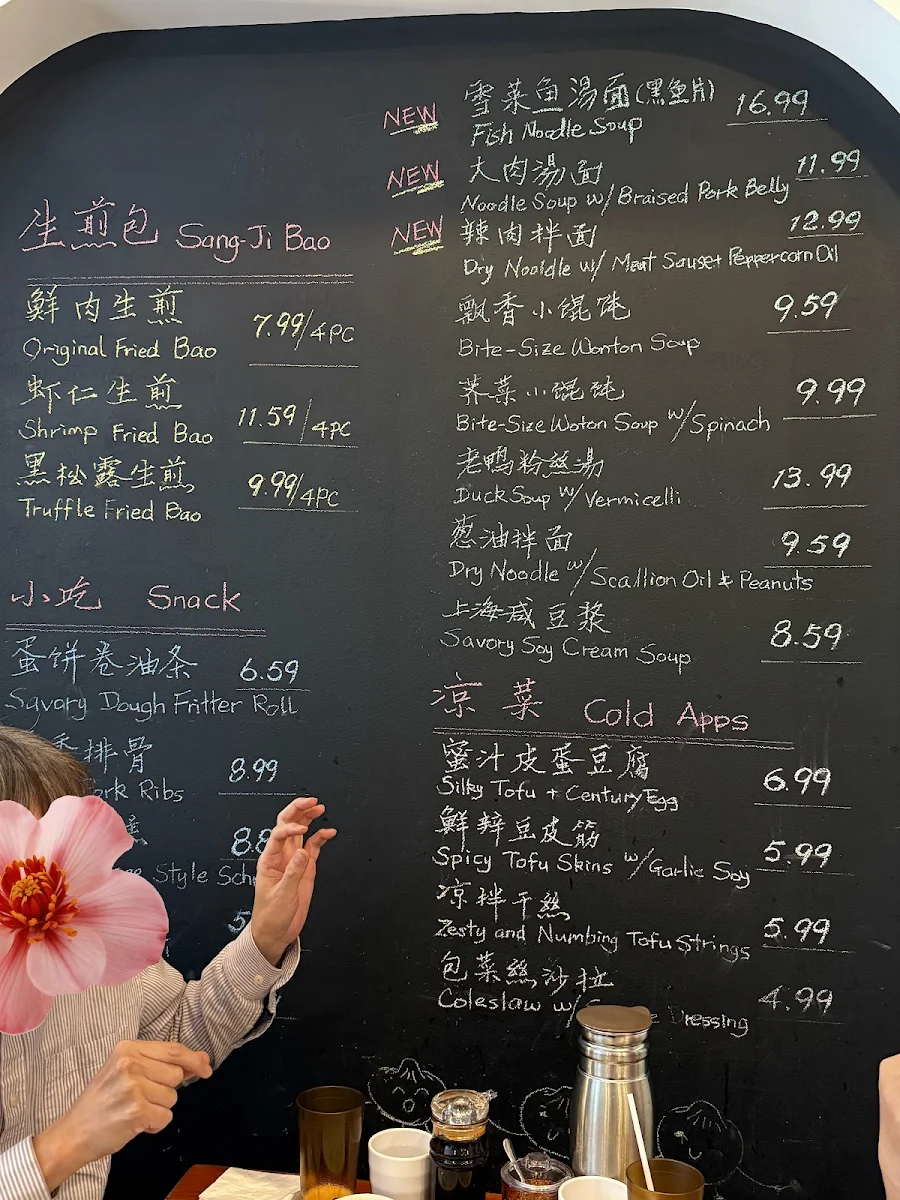 生煎包 Sang-Ji Bao
鮮肉生煎
7.99/4PC
Original Fried Bao
虾仁生煎
11.59/4PC
Shrimp Fried Bao
黑松露生煎
9.99/4PC
Truffle Fried Bao
小吃 Snack
蛋饼卷油条
6.59
Savory Dough Fritter Roll
香排骨
8.99
Ribs
8.8
Style
5
NEW
雪菜鱼湯面(黑鱼片)
16.99
Fish Noodle Soup
NEW
大肉湯面
11.99
Noodle Soup w/ Braised Pork Belly
NEW
辣肉拌面
12.99
Dry Nooldle w/ Meat Sause+ Peppercorn Oil
飘香小馄饨
9.59
Bite-Size Wonton Soup
荠菜小馄饨
9.99
Bite-Size Woton Soup w/Spinach
老鴨粉丝湯
13.99
Duck Soup w/Vermicelli
葱油拌面
9.59
Dry Noodle w/Scallion Oil & Peanuts
上海咸豆浆
8.59
Savory Soy Cream Soup
凉菜 Cold Apps
蜜汁皮蛋豆腐
6.99
Silky Tofu + Century Egg
鮮辣豆皮筋
5.99
Spicy Tofu Skins w/Garlic Soy
凉拌干絲
5.99
Zesty and Numbing Tofu Strings
包菜絲沙拉
4.99
Coleslaw w/ Dressing